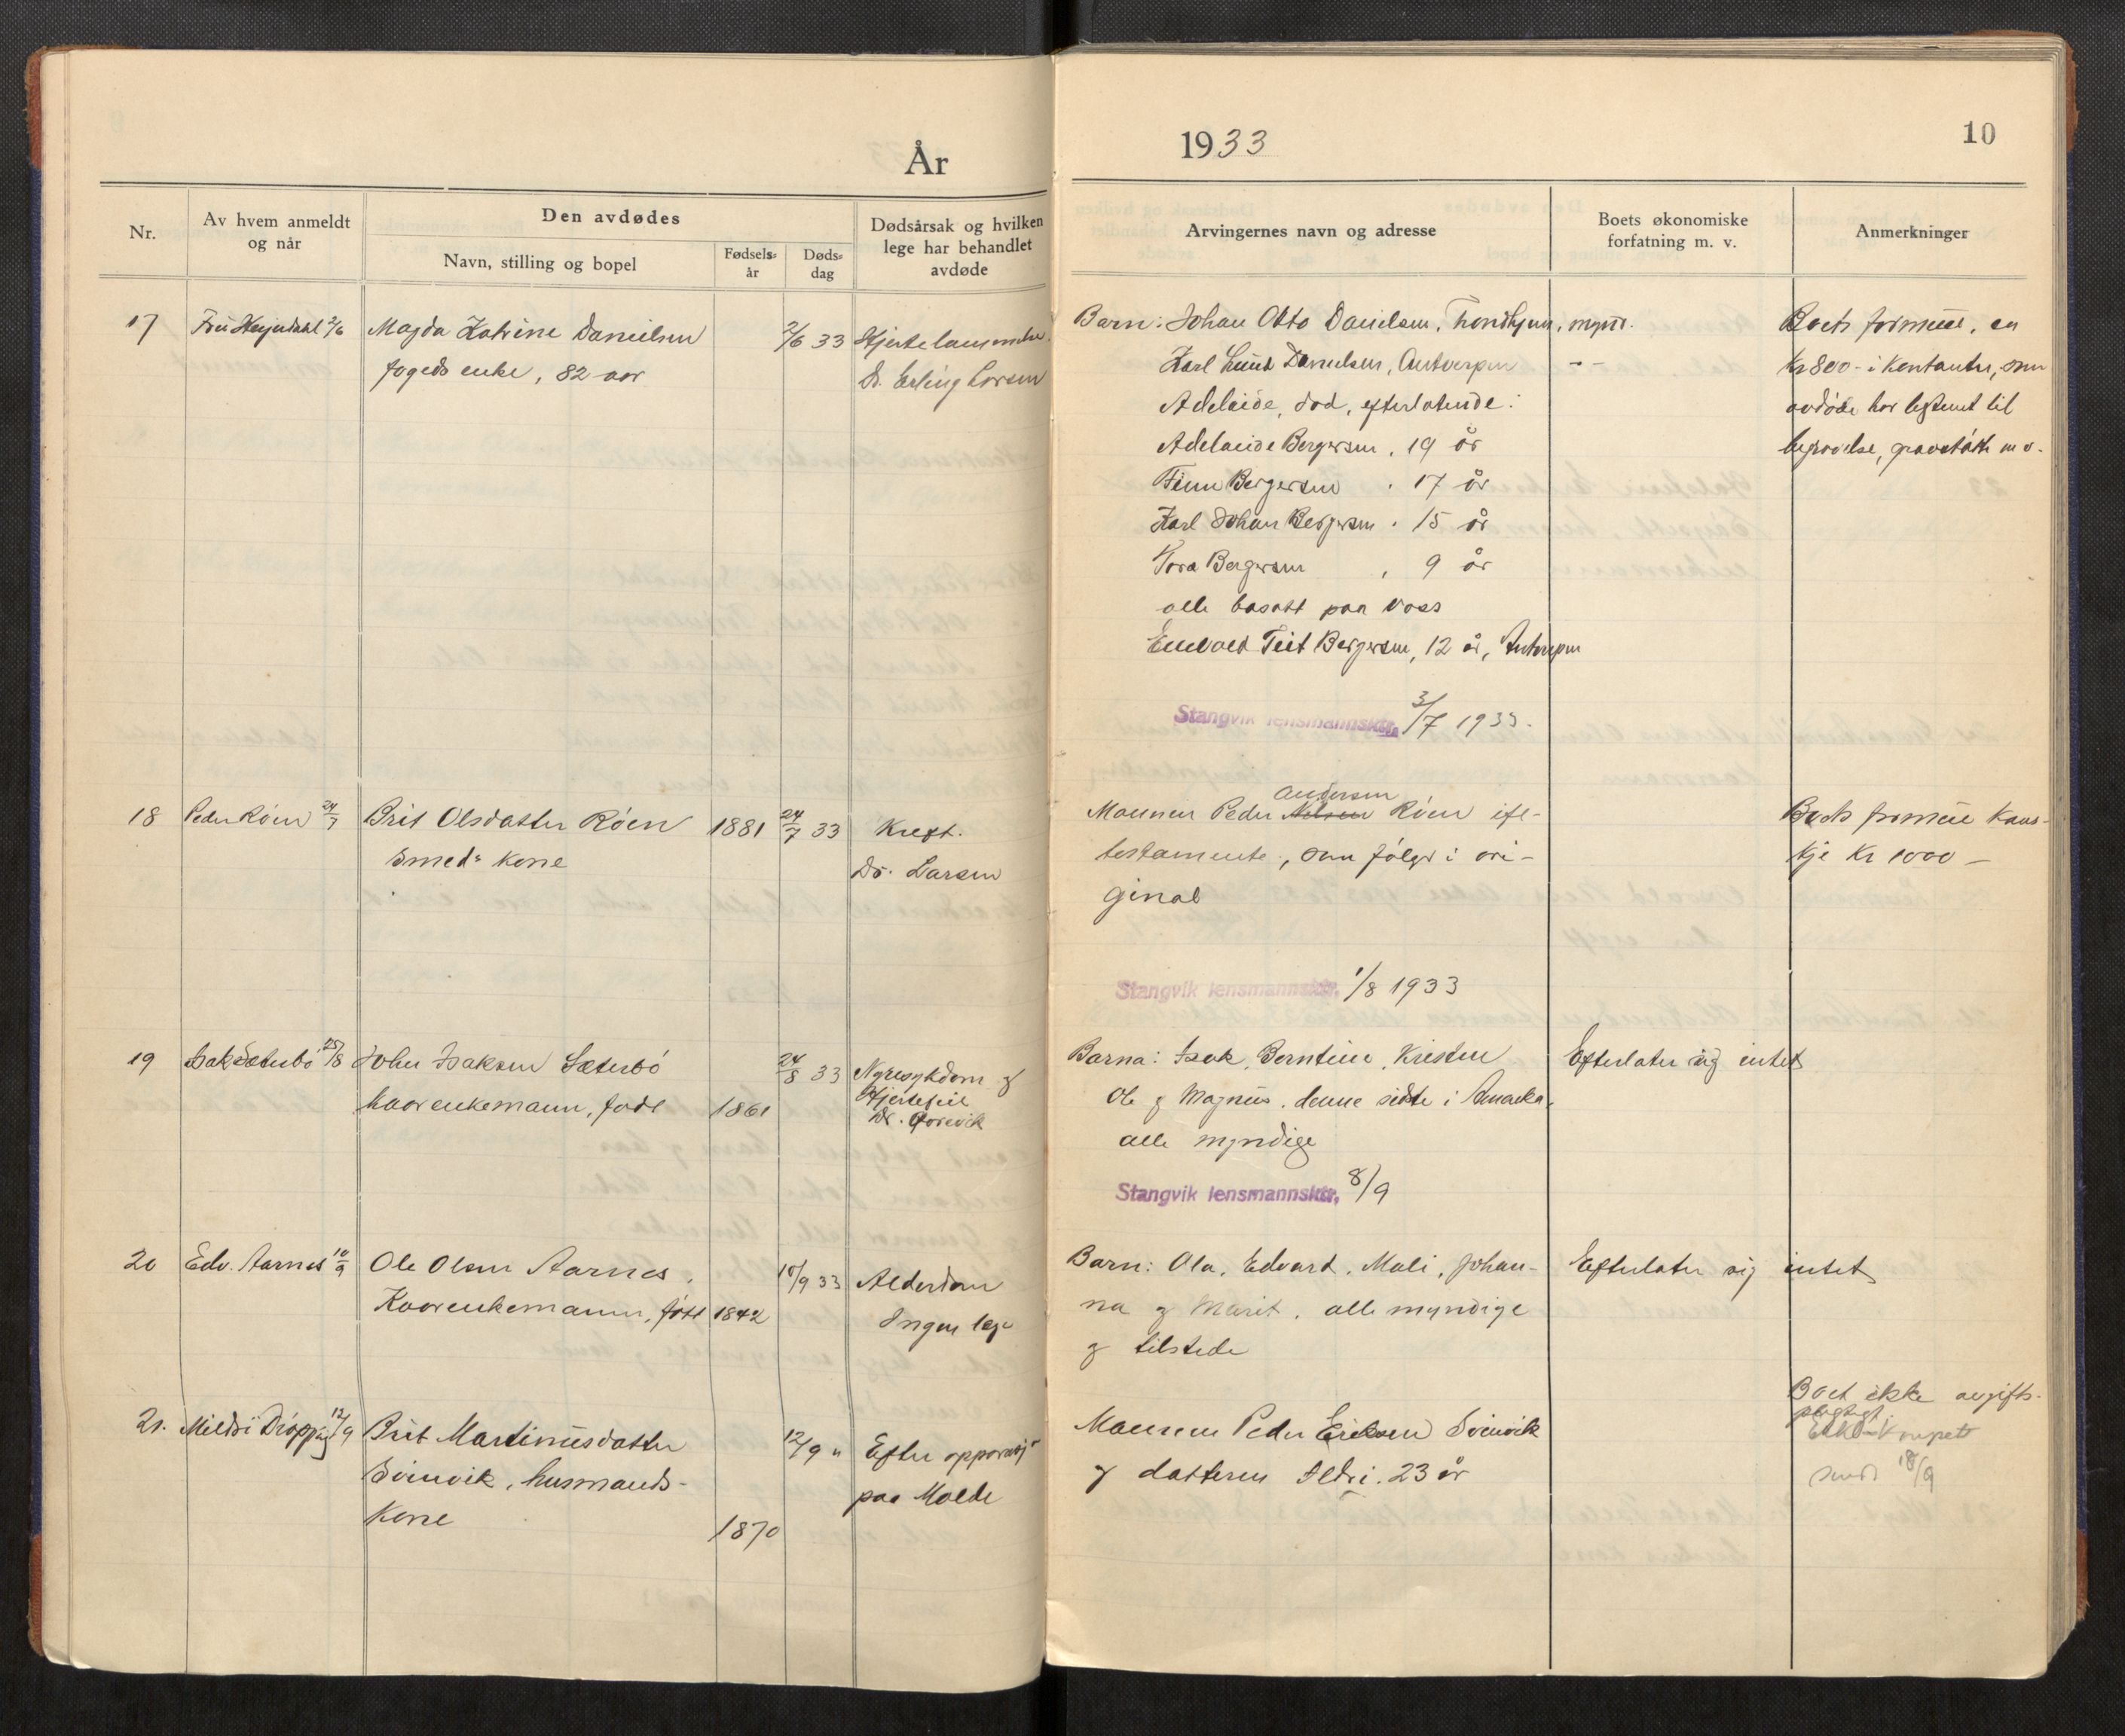 År
1933
10
Nr.
Av hvem anmeldt
og når
Den avdødes
Navn, stilling og bopel
Fødsels-
år
Døds-
dag
Dødsårsak og hvilken
lege har behandlet
avdøde
Arvingernes navn og adresse
Boets økonomiske
forfatning m. v.
Anmerkninger
17
Fru 2/6
Magda Katrine Danielsen
fogeds enke, 82 aar
2/6 33
Dr. Erling Larsen
Barn: Johan Otto Danielsen, Trondhjem, mynd.
Karl Lund Danielsen, Antverpen - -
Adelaide, død, efterlatende:
Adelaide Bergersen, 19 år
Finn Bergersen, 17 år
Karl Johan Bergersen, 15 år
Tora Bergersen, 9 år
alle bosatt paa Voss
Teit Bergersen, 12 år, Antverpen
Boets formue, ca
Kr 800- i kontanter, som
avdøde har bestemt til
begravelse, gravstøtte m v.
Stangvik lensmannsktr. 3/7 1933.
18
Peder Røen 24/7
Brit Olsdatter Røen
Smeds kone
1881
24/7 33
Kreft.
Dr. Larsen
Andersen
Mannen Peder Nilsen Røen
testamente, som følger i ori-
ginal
Boets formue kans-
kje Kr 1000 -
Stangvik lensmannsktr. 1/8 1933
19
Isak Sæterbø 25/8
John Isaksen Sæterbø
kaarenkemann, født
1861
24/8 33
Nyresykdom og
Hjertefeil
Dr.
Barna: Isak, Berntine, Kristen
Ole og Magnus, denne sidste i Amerika,
alle myndige
Efterlater sig intet
Stangvik lensmannsktr. 8/9
20
Edv. Aarnes 10/9
Ole Olsen Aarnes,
Kaarenkemann, født
1842
10/9 33
Alderdom
Ingen læge
Barn: Ola, Edvard, Mali, Johan-
na og Marit, alle myndige
og tilstede
Efterlater sig intet
21.
Mildri 12/9
Brit Martinusdatter
Svinvik, husmands-
kone
1870
12/9 "
Efter
paa Molde
Mannen Peder Eriksen Svinvik
og datteren Aldri, 23 år
Boet ikke avgifts-
pligtigt.
sendt 18/9